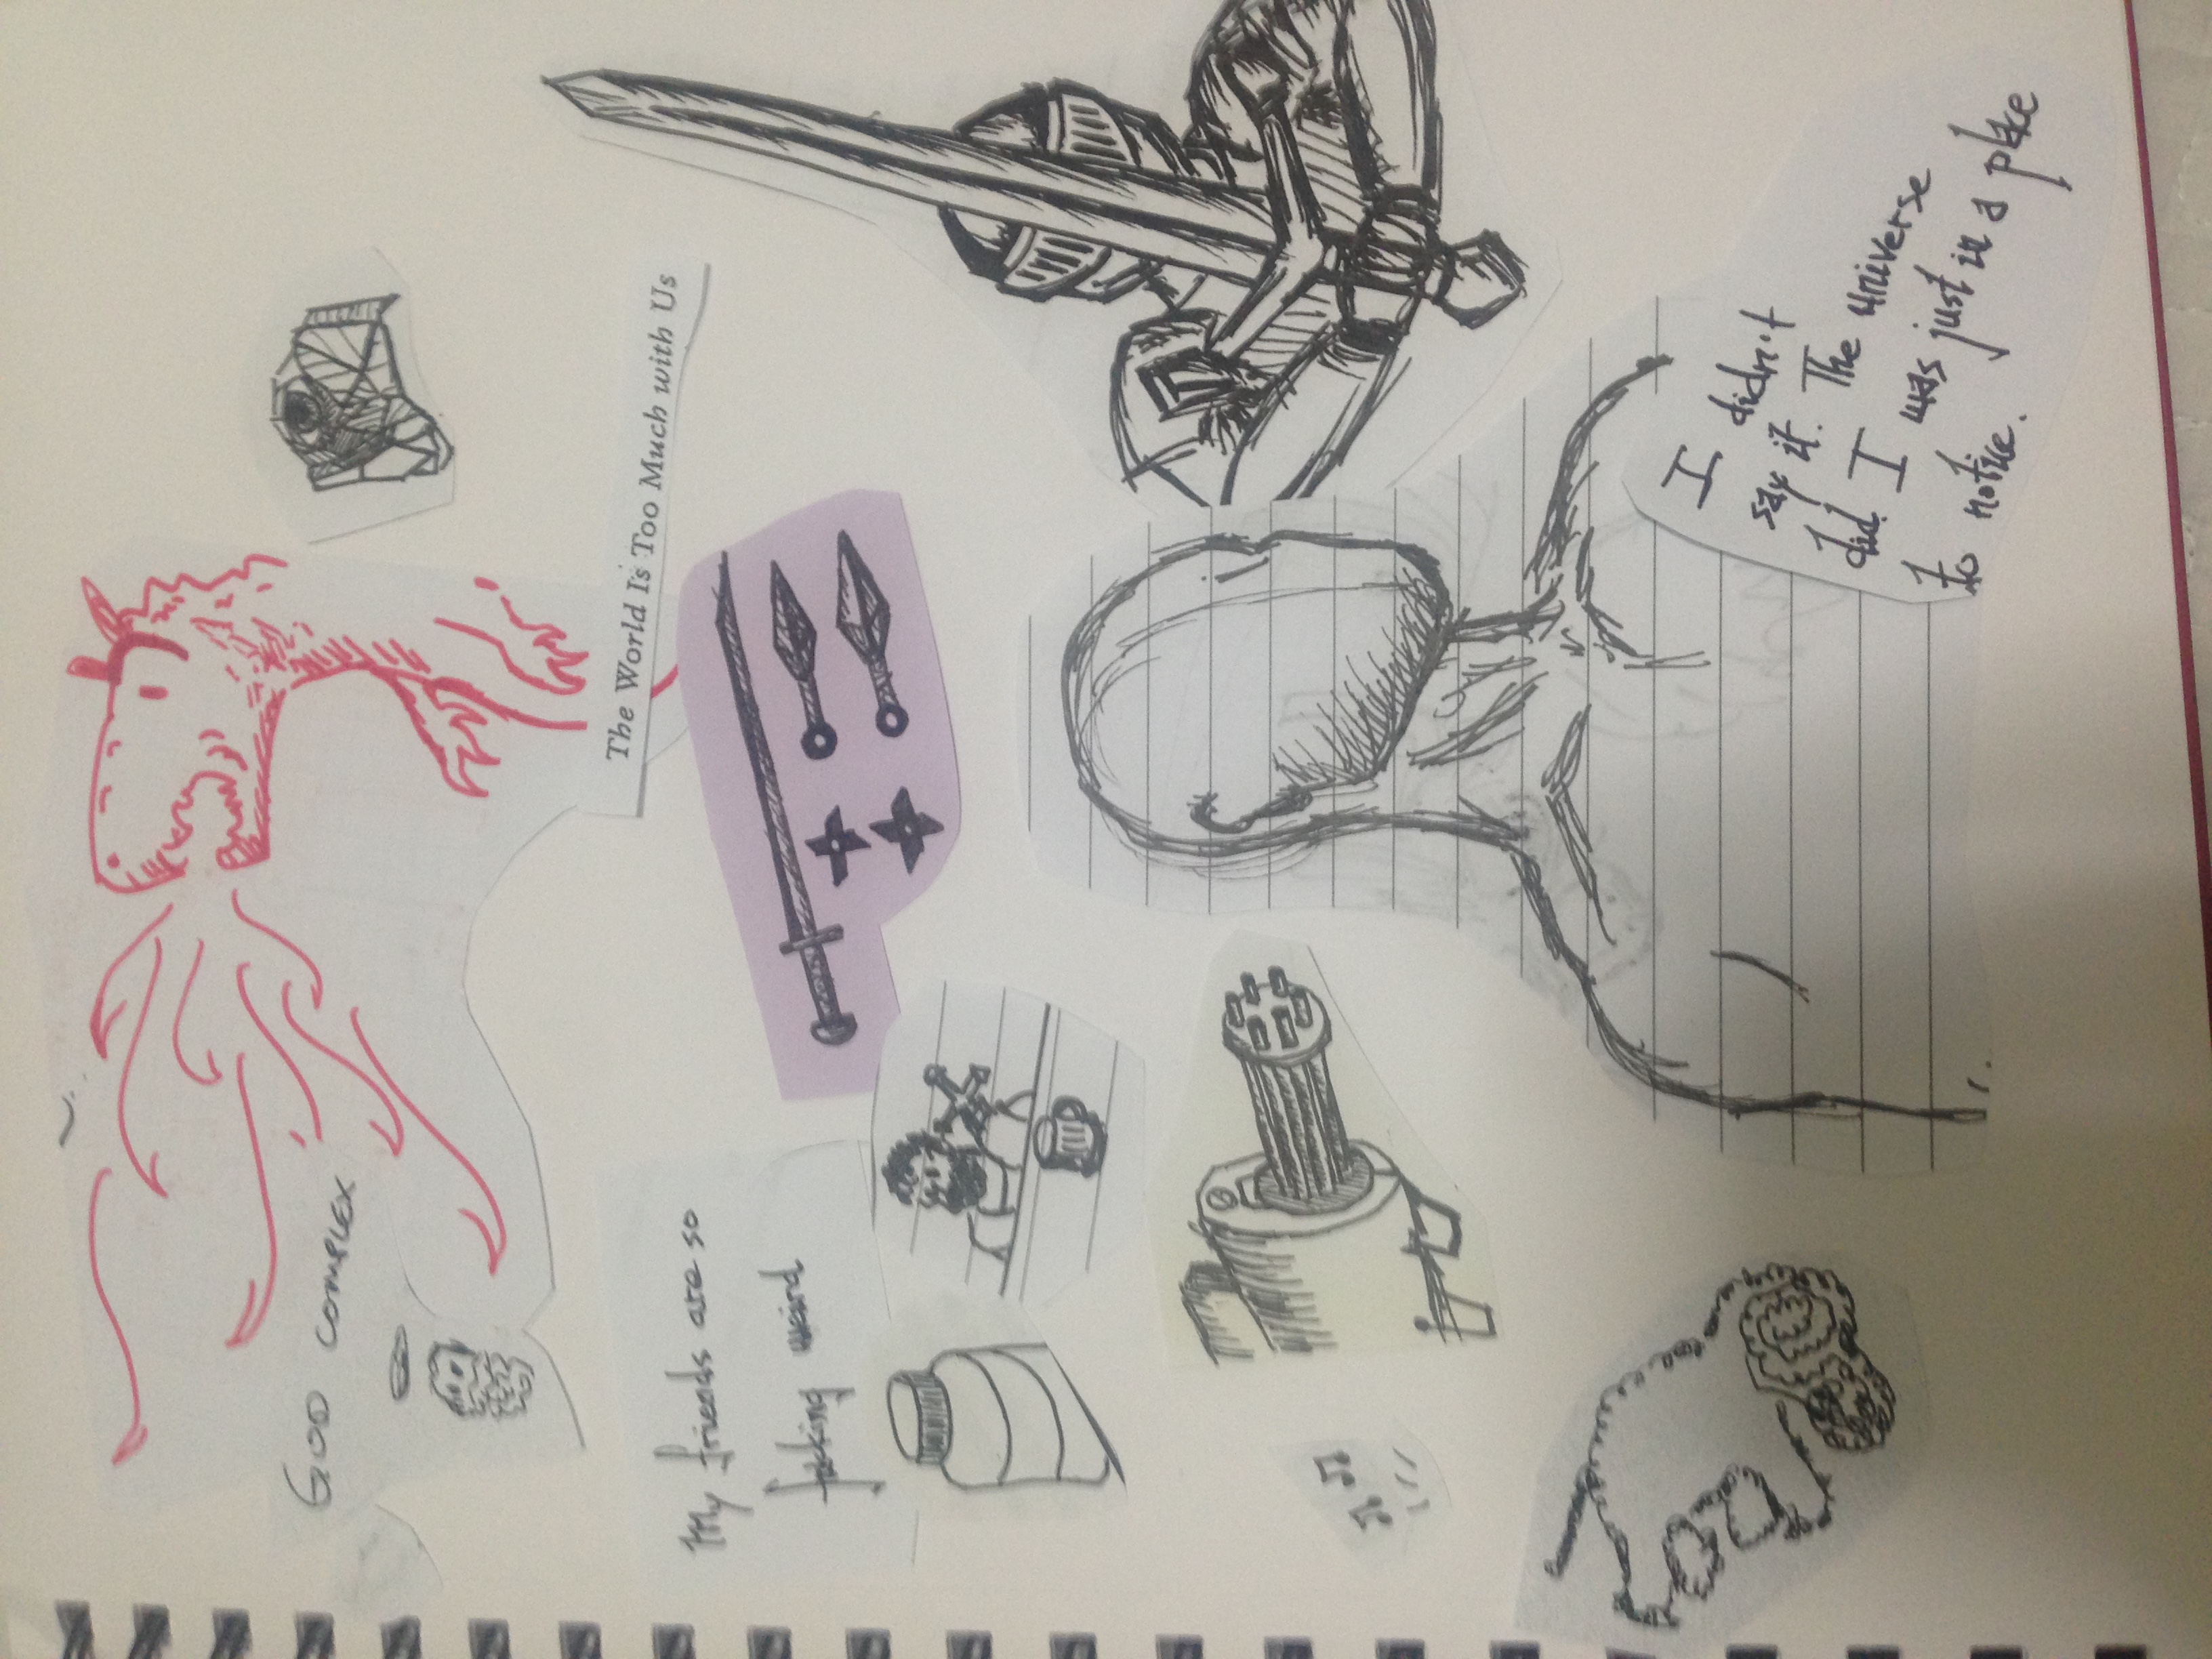 GOD COMPLEX
The World Is Too Much with Us
My friends are so
fucking weird
I didn't
say it. The universe
did. I was just in a place
to notice.